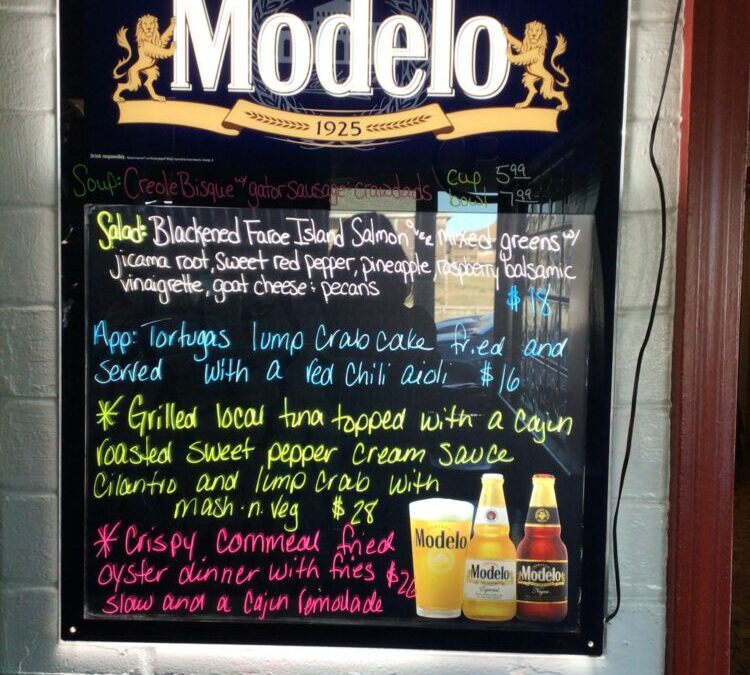 Modelo
1925
Drink responsibly.
Soup: Creole Bisque w/ gator sausage + crawdads cup 5.99
bowl 7.99
Salad: Blackened Faroe Island Salmon over mixed greens w/
jicama root, sweet red pepper, pineapple, raspberry balsamic
vinaigrette, goat cheese + pecans
$18
App: Tortugas lump crab cake fried and
served with a red chili aioli $16
* Grilled local tuna topped with a cajun
roasted sweet pepper cream sauce
cilantro and lump crab with
mash n veg $28
* Crispy cornmeal fried
oyster dinner with fries $26
slaw and a cajun remoulade
Modelo
Modelo
Especial
Modelo
Negra